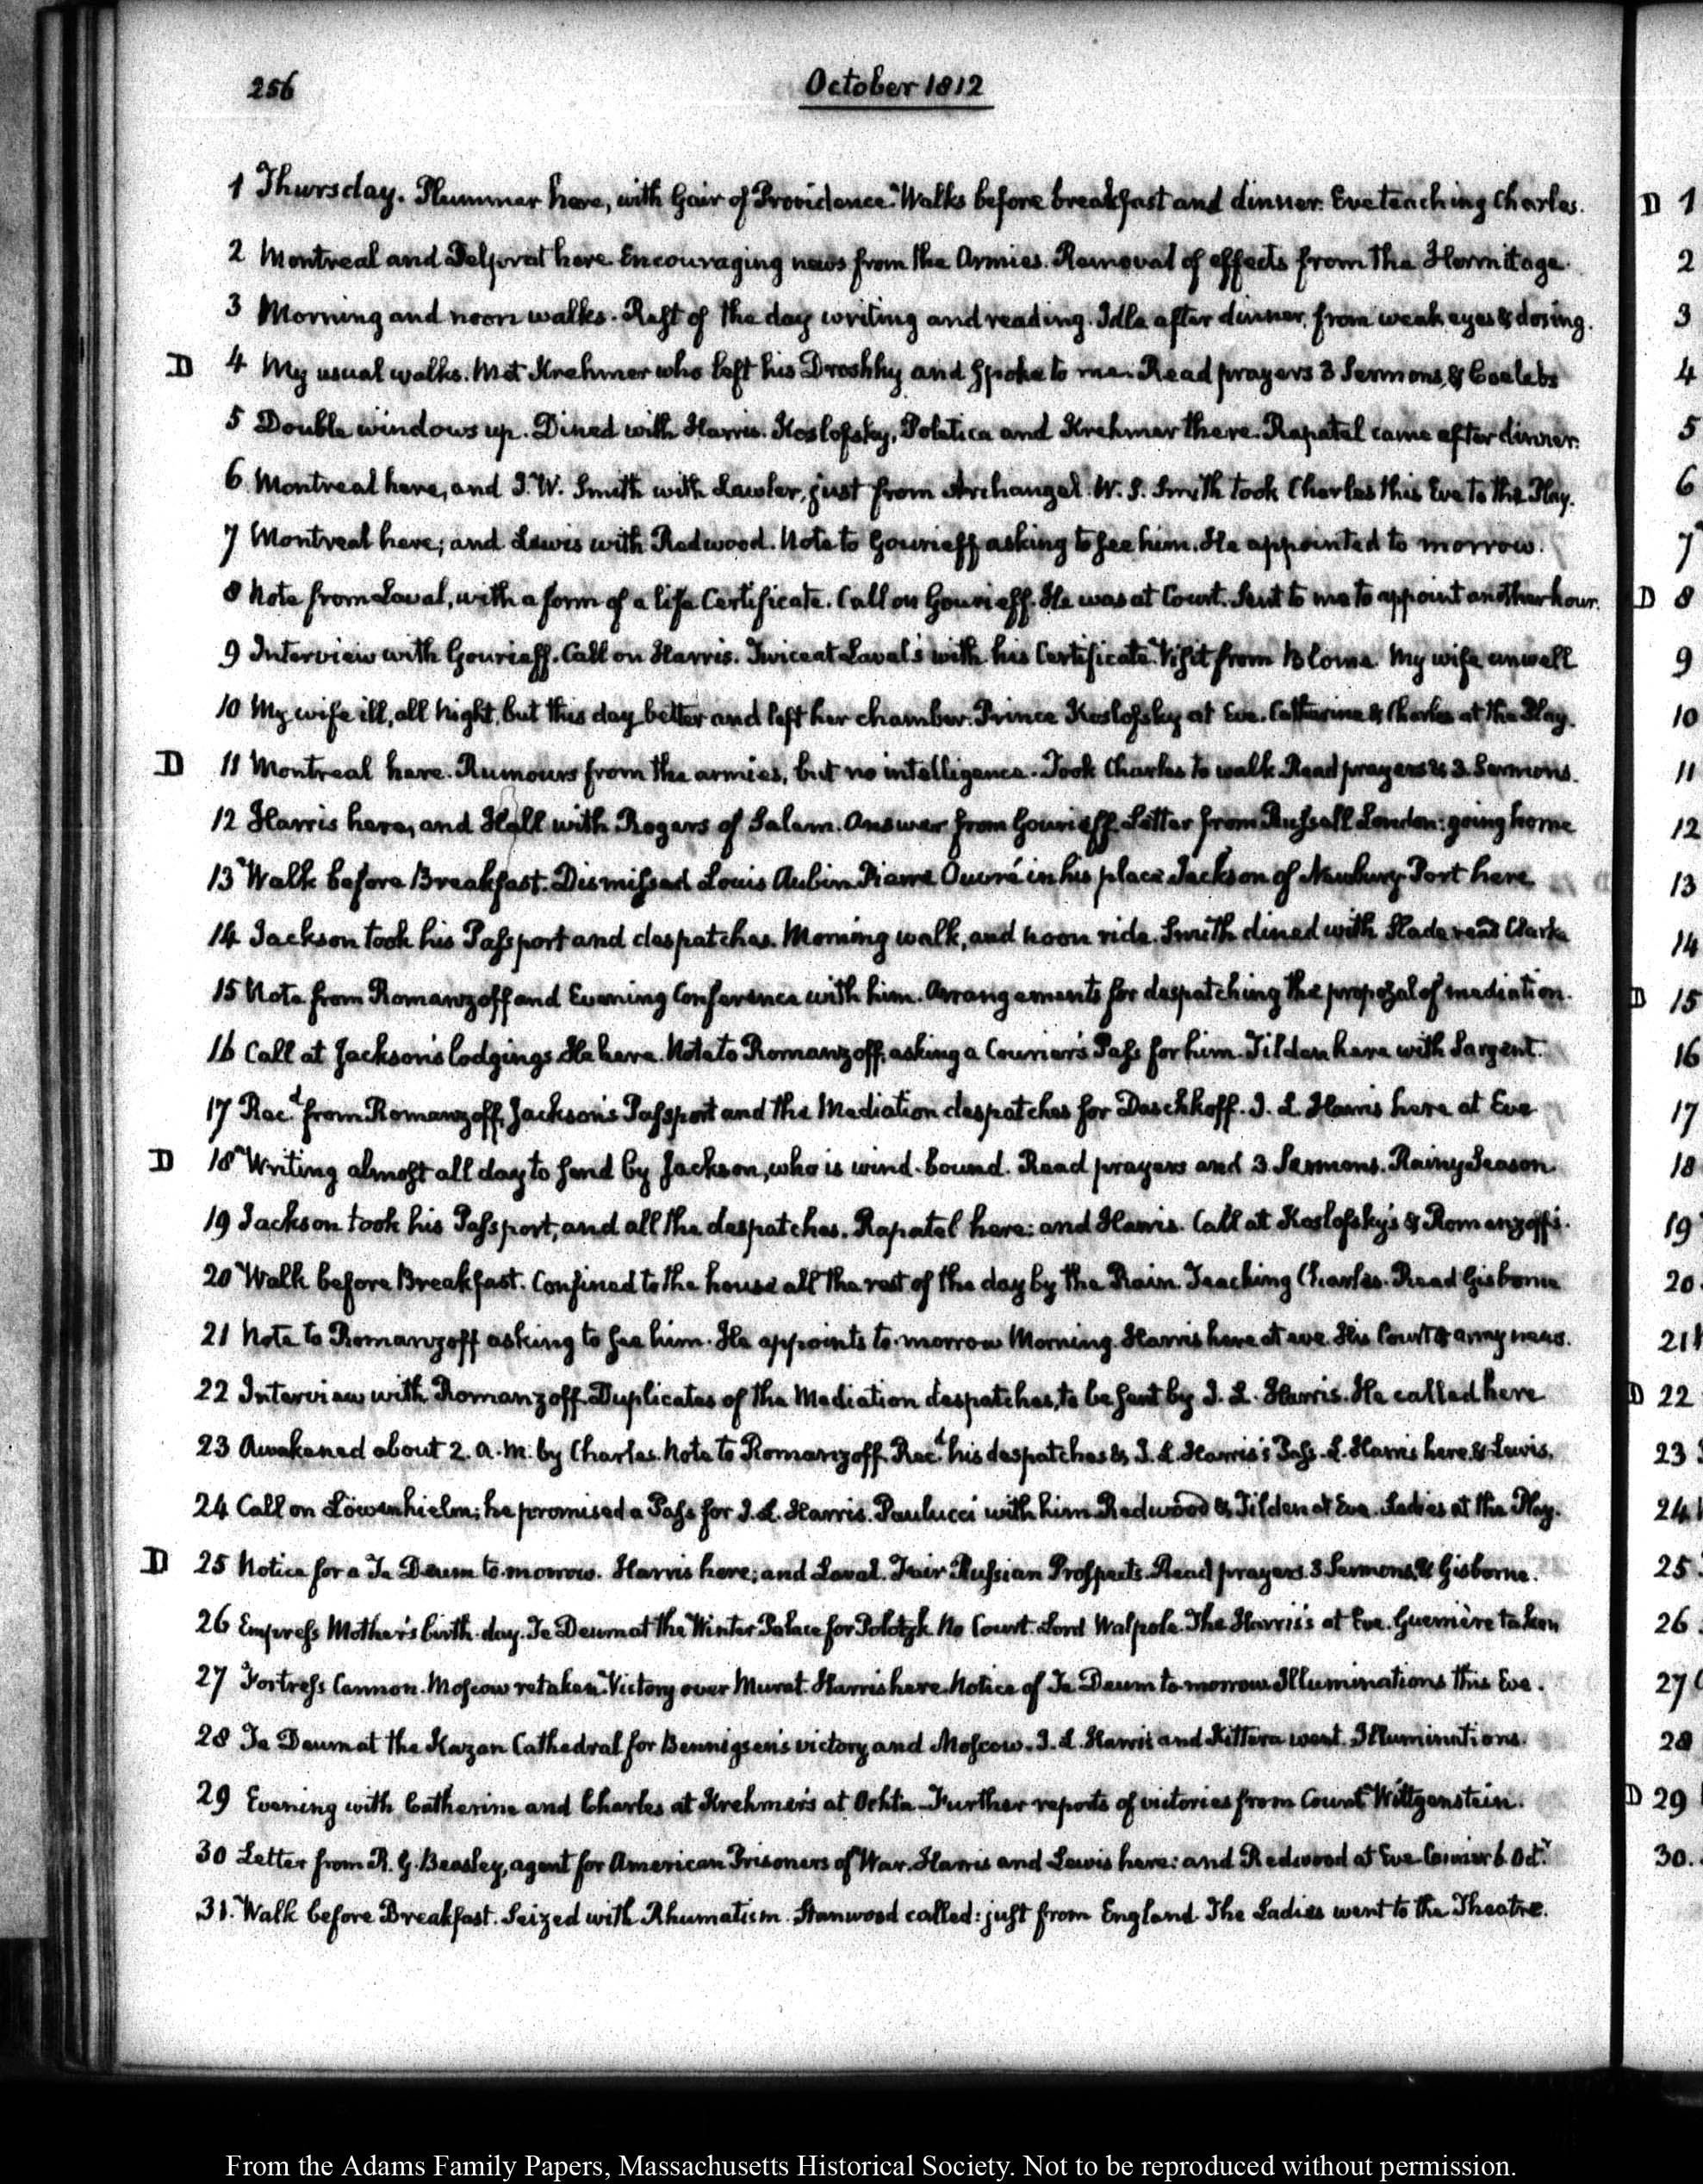 256
October 1812
1 Thursday. Plummer here, with Gair of Providence. Walks before breakfast and dinner. Eve teaching Charles.
2 Montreal and Delprat here. Encouraging news from the Armies. Removal of effects from the Hermitage.
3 Morning and noon walks. Rest of the day writing and reading. Idle after dinner, from weak eyes & dosing.
D 4 My usual walks. Met Krehmer who left his Droshky and spoke to me. Read prayers 3 Sermons, & Coelebs
5 Double windows up. Dined with Harris. Koslofsky, Poletica and Krehmer there. Rapatel came after dinner.
6 Montreal here, and I. W. Smith with Lawler, just from Archangel. W. S. Smith took Charles this Eve to the Play.
7 Montreal here; and Lewis with Redwood. Note to Gourieff asking to see him. He appointed to morrow.
8 Note from Laval, with a form of a life Certificate. Call on Gourieff. He was at Court. Sent to me to appoint another hour.
9 Interview with Gourieff. Call on Harris. Twice at Laval's with his Certificate. Visit from Blome. My wife unwell
10 My wife ill, all night, but this day better and left her chamber. Prince Koslofsky at Eve. Catherine & Charles at the Play.
D 11 Montreal here. Rumours from the armies, but no intelligence. Took Charles to walk. Read prayers & 3. Sermons.
12 Harris here, and Hall with Rogers of Salem. Answer from Gourieff. Letter from Russell London: going home
13 Walk before Breakfast. Dismissed Louis Aubin Pierre Ouvré in his place Jackson of Newbury Port here
14 Jackson took his Passport and despatches. Morning walk, and noon ride. Smith dined with Slade read Clarke
15 Note from Romanzoff and Evening Conference with him. Arrangements for despatching the proposal of mediation.
16 Call at Jackson's lodgings. He here. Note to Romanzoff, asking a Courier's Pass for him. Tilden here with Sargent.
17 Recd. from Romanzoff, Jackson's Passport and the Mediation despatches for Daschkoff. I. L. Harris here at Eve
D 18 Writing almost all day to send by Jackson, who is wind-bound. Read prayers and 3 Sermons. Rainy Season.
19 Jackson took his Passport, and all the despatches. Rapatel here: and Harris. Call at Koslofsky's & Romanzoff's.
20 Walk before Breakfast. Confined to the house all the rest of the day by the Rain. Teaching Charles. Read Gisborne
21 Note to Romanzoff asking to see him. He appoints to-morrow Morning. Harris here at eve. His Court & army news.
22 Interview with Romanzoff. Duplicates of the Mediation despatches, to be sent by I. L. Harris. He called here
23 Awakened about 2. a.m. by Charles. Note to Romanzoff. Recd. his despatches & I. L. Harris's Pass. L. Harris here & Lewis.
24 Call on Löwenhielm; he promised a Pass for I. L. Harris. Paulucci with him. Redwood & Tilden at Eve. Ladies at the Play.
D 25 Notice for a Te Deum to-morrow. Harris here; and Laval. Fair Russian Prospects. Read prayers. 3 Sermons, & Gisborne.
26 Empress Mother's birth-day. Te Deum at the Winter Palace for Polotzk. No Court. Lord Walpole. The Harris's at Eve. Guerrière taken
27 Fortress Cannon. Moscow retaken. Victory over Murat. Harris here. Notice of Te Deum to morrow. Illuminations this Eve.
28 Te Deum at the Kazan Cathedral for Bennigsen's victory and Moscow. I. L. Harris and Kittera went. Illuminations.
29 Evening with Catherine and Charles at Krehmer's at Ochta. Further reports of victories from Count Wittgenstein.
30 Letter from R. G. Beasley, agent for American Prisoners of War. Harris and Lewis here: and Redwood at Eve. Courier 6. Octr.
31. Walk before Breakfast. Seized with Rhumatism. Stanwood called: just from England. The Ladies went to the Theatre.
D 1
2
3
4
5
6
7
D 8
9
10
11
12
13
14
D 15
16
17
18
19
20
21
D 22
23
24
25
26
27
28
D 29
30.
From the Adams Family Papers, Massachusetts Historical Society. Not to be reproduced without permission.